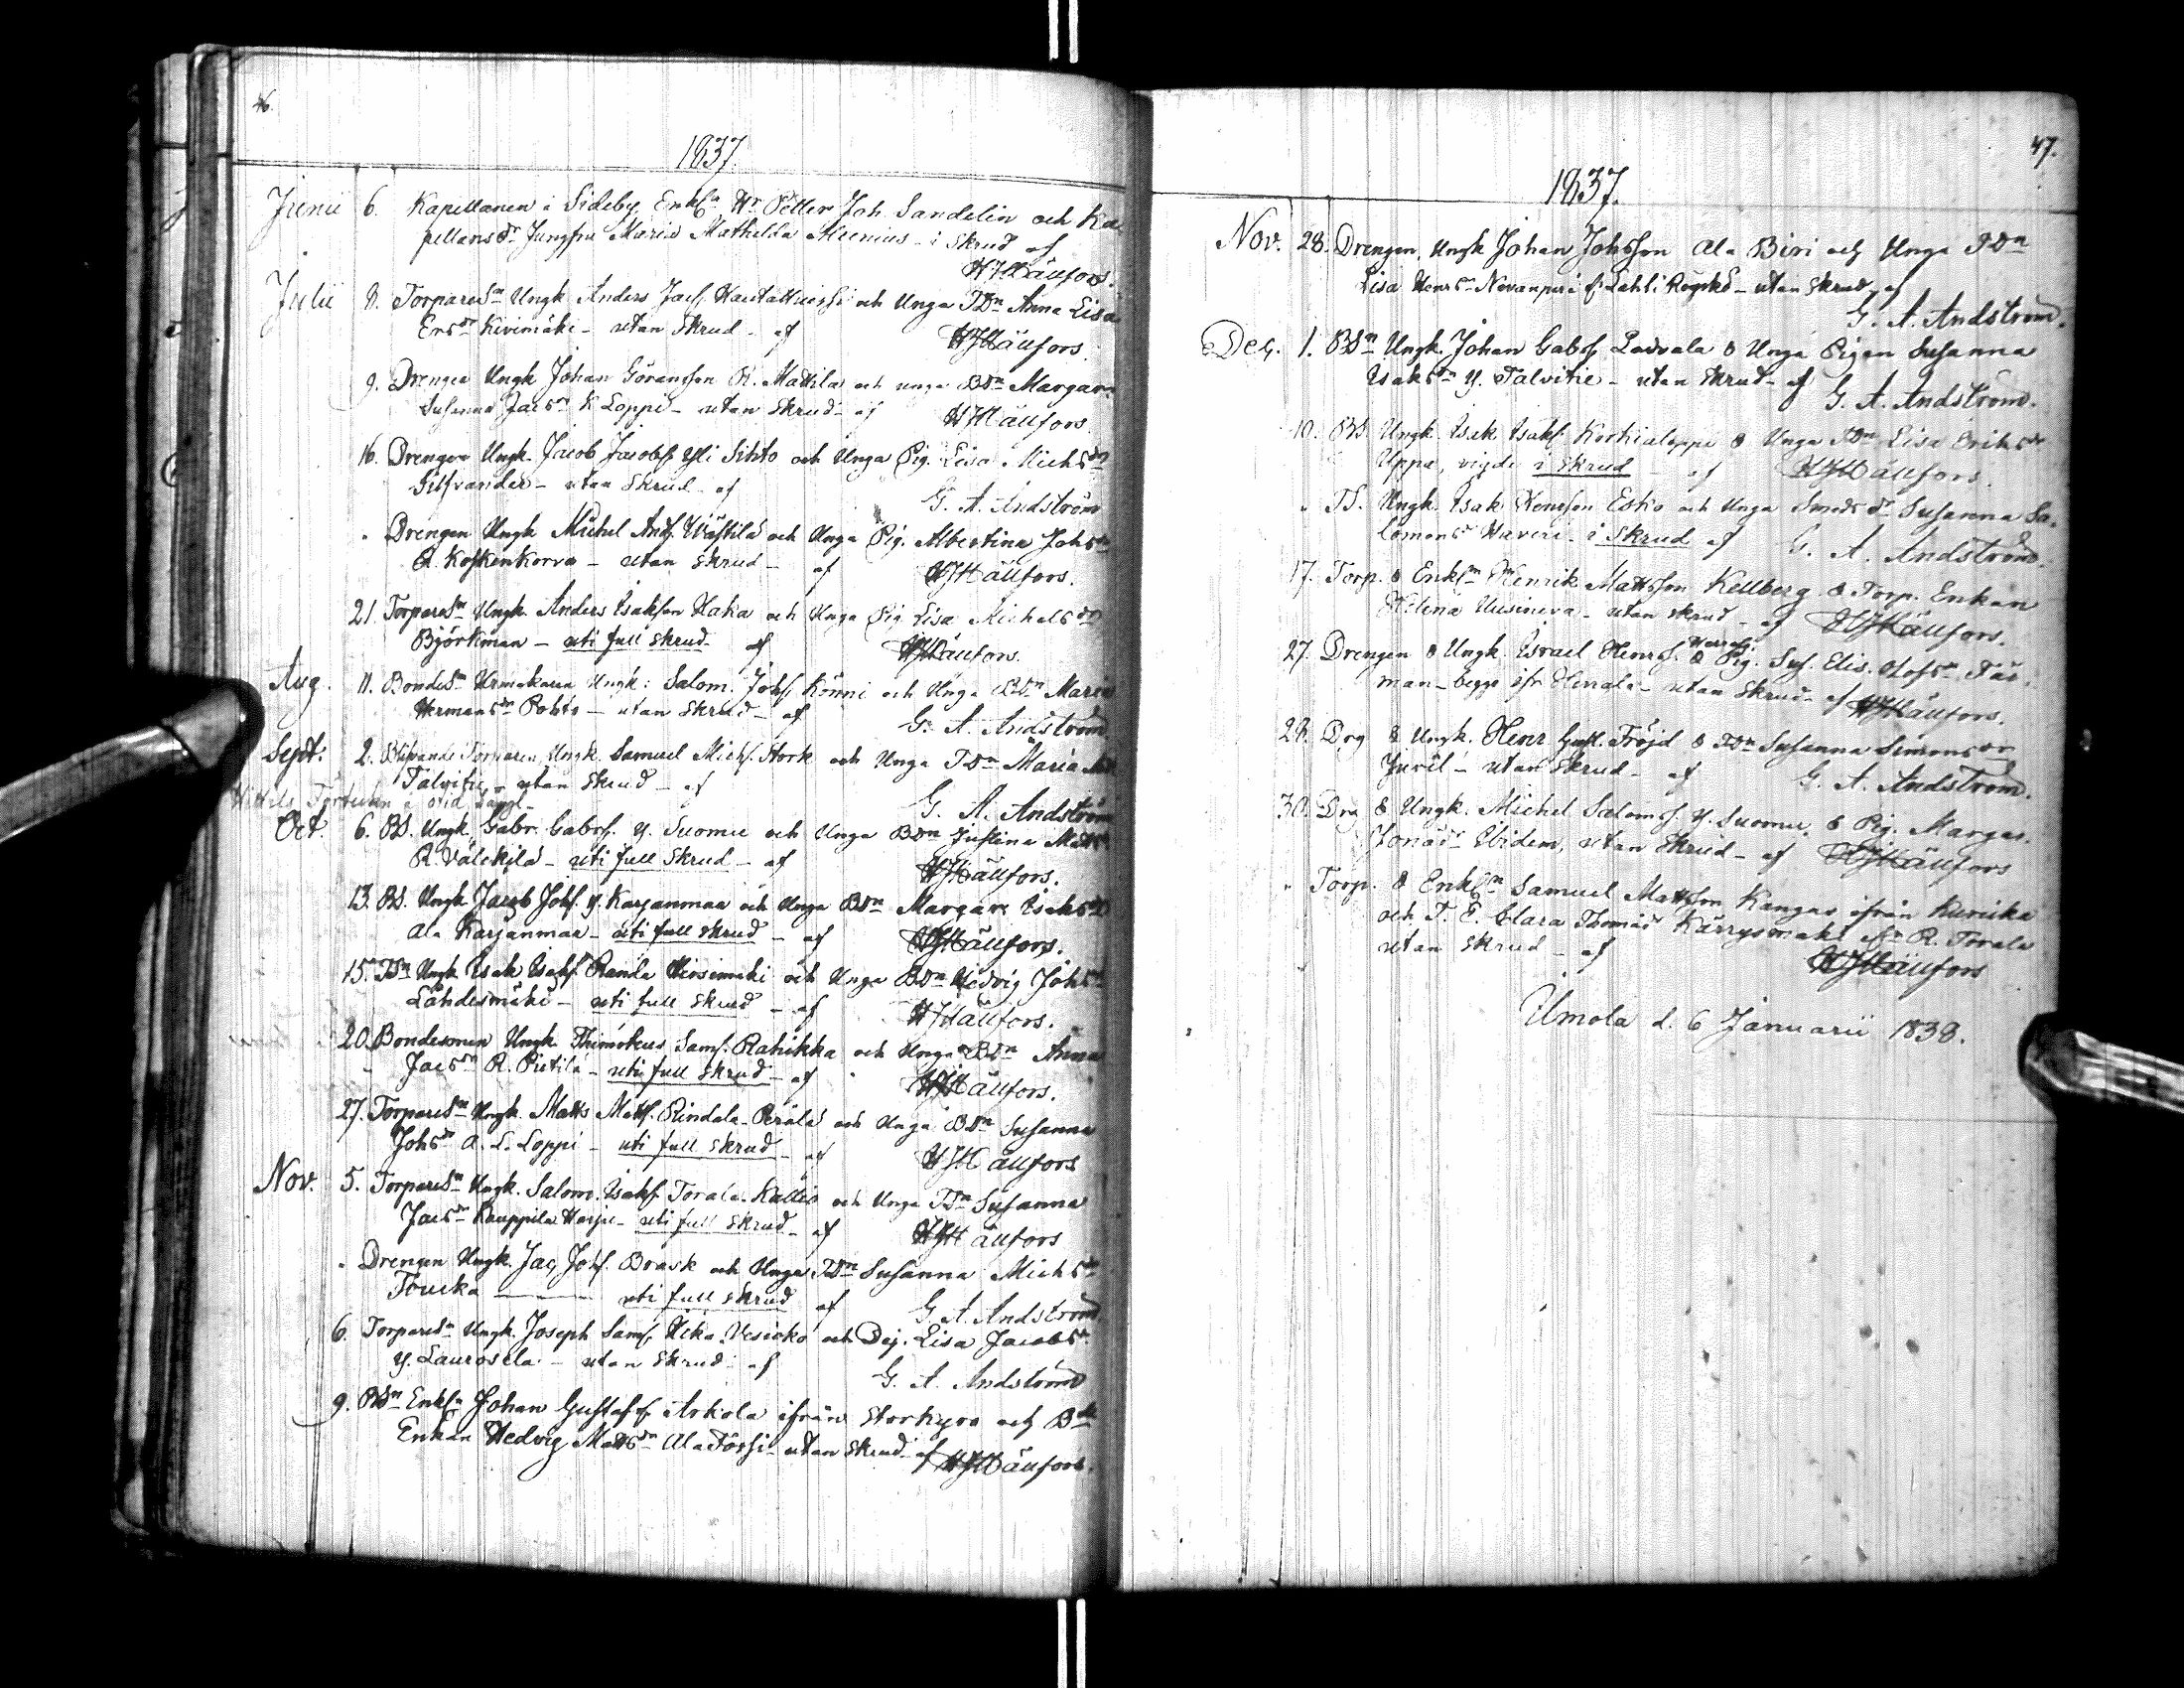 46.
1837.
Junii 6. Kapellanen i Sideby, Enkl. Hr Petter Joh. Sandelin och Ka-
pellans dr Jungfru Maria Mathilda Munius - i skrud af
HJHällfors.
Julii 9. Torpares:n Ungk Anders Jacs. och Unga TDn Anna Lisa
Ersdr Kivimäki - utan skrud - af HJHällfors.
9. Drengen Ungk Johan Göransson R. Mattila och unga BDn Margar:
Susanna Jacsdr K Loppi - utan skrud - af HJHällfors
16. Drengen Ungk. Jacob Jacobss. Yli Sihto och Unga Pig. Lisa Michsdr
Silfvander - utan skrud - af G. A. Andström
" Drengen Ungk Michel Ands. Wästilä och Unga Pig. Albertina Johsdr
R. Koskenkorva - utan skrud - af HJHällfors.
21. Torpares:n Ungk. Anders Isaksson Haka och Unga Pig Lisa Michelsdr
Björkman - uti full skrud - af HJHällfors.
Aug. 11. Bondes:n Urmakaren Ungk: Salom. Johs. Könni och Unga BDn Maria
Hermansdr Pohto - utan skrud - af G. A. Andström
Sept. 2. Blifvande Torparen Ungk. Samuel Michs. Stork och Unga TDn Maria
Talvitie - utan skrud - af
G. A. Andström
Oct. 6. BS. Ungk. Gabr. Gabrs. Y. Suomu och Unga BDn Justina Matts
R. Välikylä - uti full skrud - af HJHällfors.
13. BS. Ungk Jacob Johs. Y. Karjanmaa och Unga BDn Margar: Isaksdr
Ala Karjanmaa - uti full skrud - af HJHällfors.
15. TSn Ungk Isak Isaks. Randa Hirsimäki och Unga BDn Hedvig Johsdr
Lähdesmäki - uti full skrud - af HJHällfors.
20. Bondesonen Ungk Thimoteus Sams. Rahikka och Unga BDn Anna
Jacsdr R. Pietilä - uti full skrud - af HJHällfors.
27. Torpares:n Ungk. Matts Matts. Rindala-Perälä och Unga BDn Susanna
Johsdr A. L. Loppi - uti full skrud - af HJHällfors
Nov. 5. Torpares:n Ungk. Salom. Isaks. Torala-Kallio och Unga TDn Susanna
Jacsdr Kauppila Harju - uti full skrud - af HJHällfors
" Drengen Ungk. Jac. Johs. Brask och Unga TDn Susanna Michsdr
Touska - uti full skrud af G. A. Andström
6. Torpares:n Ungk. Joseph Sams. och Pig. Lisa Jacobsdr
Y. Laurosela - utan skrud - af G. A. Andström
9. BSn Enkl. Johan Gustafss. Arkola ifrån Storkyro och Bde
Enkan Hedvig Mattsdr Ala Fössi - utan skrud - af HJHällfors.
47.
1837.
Nov. 28. Drengen, Ungk Johan Johsson Ala Biri och Unga TDn
Lisa Henrsdr Nevanperä - utan skrud - af
G. A. Andström.
Dec. 1. BSn Ungk. Johan Gabrs. Ladvala & Unga Pigan Susanna
Isaksdr Y. Talvitie - utan skrud - af G. A. Andström.
10. BS Ungk. Isak Isaks. Korkialoppi & Unga TDn Lisa Eriksdr
Uppa, vigde i skrud - af HJHällfors.
" TS. Ungk. Isak Henrsson Esko och Unga Smedsdr Susanna Sa-
lomonsdr Huveri - i skrud af G. A. Andström.
17. Torp. & Enkl:n Henrik Mattsson Kellberg & Torp. Enkan
Helena Uusineva - utan skrud - af HJHällfors.
27. Drengen & Ungk. Israel Henrs. & Pig. Sus. Elis. Olofsdr
man - begge ifr. - utan skrud - af HJHällfors.
28. Drg & Ungk. Henr Gust. Fröjd & TDn Susanna Simonsdr
Juvel - utan skrud - af G. A. Andström.
30. Drg & Ungk. Michel Saloms. Y. Suomu & Pig. Margar.
Jonasdr Ibidem, utan skrud - af HJHällfors
" Torp. & Enkl:n Samuel Mattsson Kangas ifrån Kurikka
och T. E. Clara Thomasdr Kärrysmäki R. Torala
utan skrud - af HJHällfors
Ilmola d. 6 Januarii 1838.